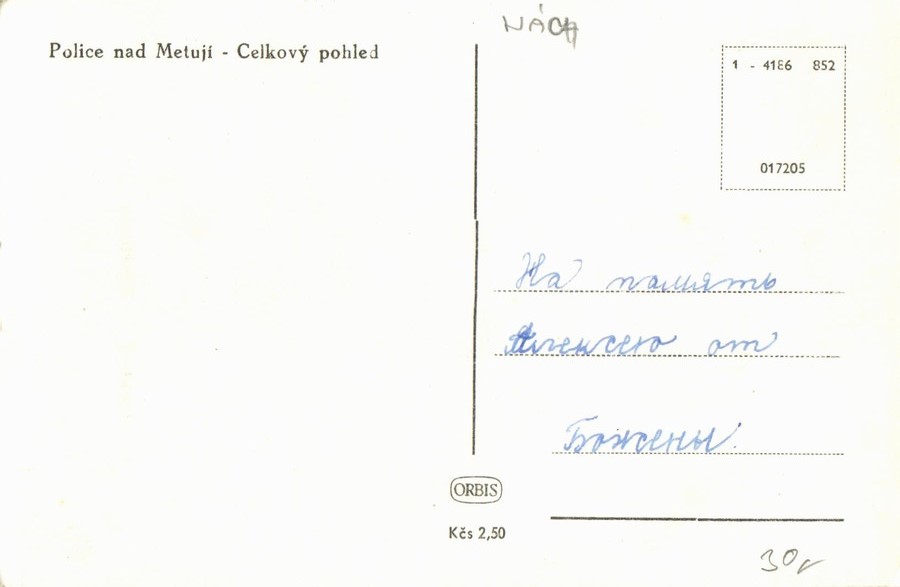 NÁCH
Police nad Metují - Celkový pohled
1 - 4186 852
017205
На память
Алексею от
Божены.
ORBIS
Kčs 2,50